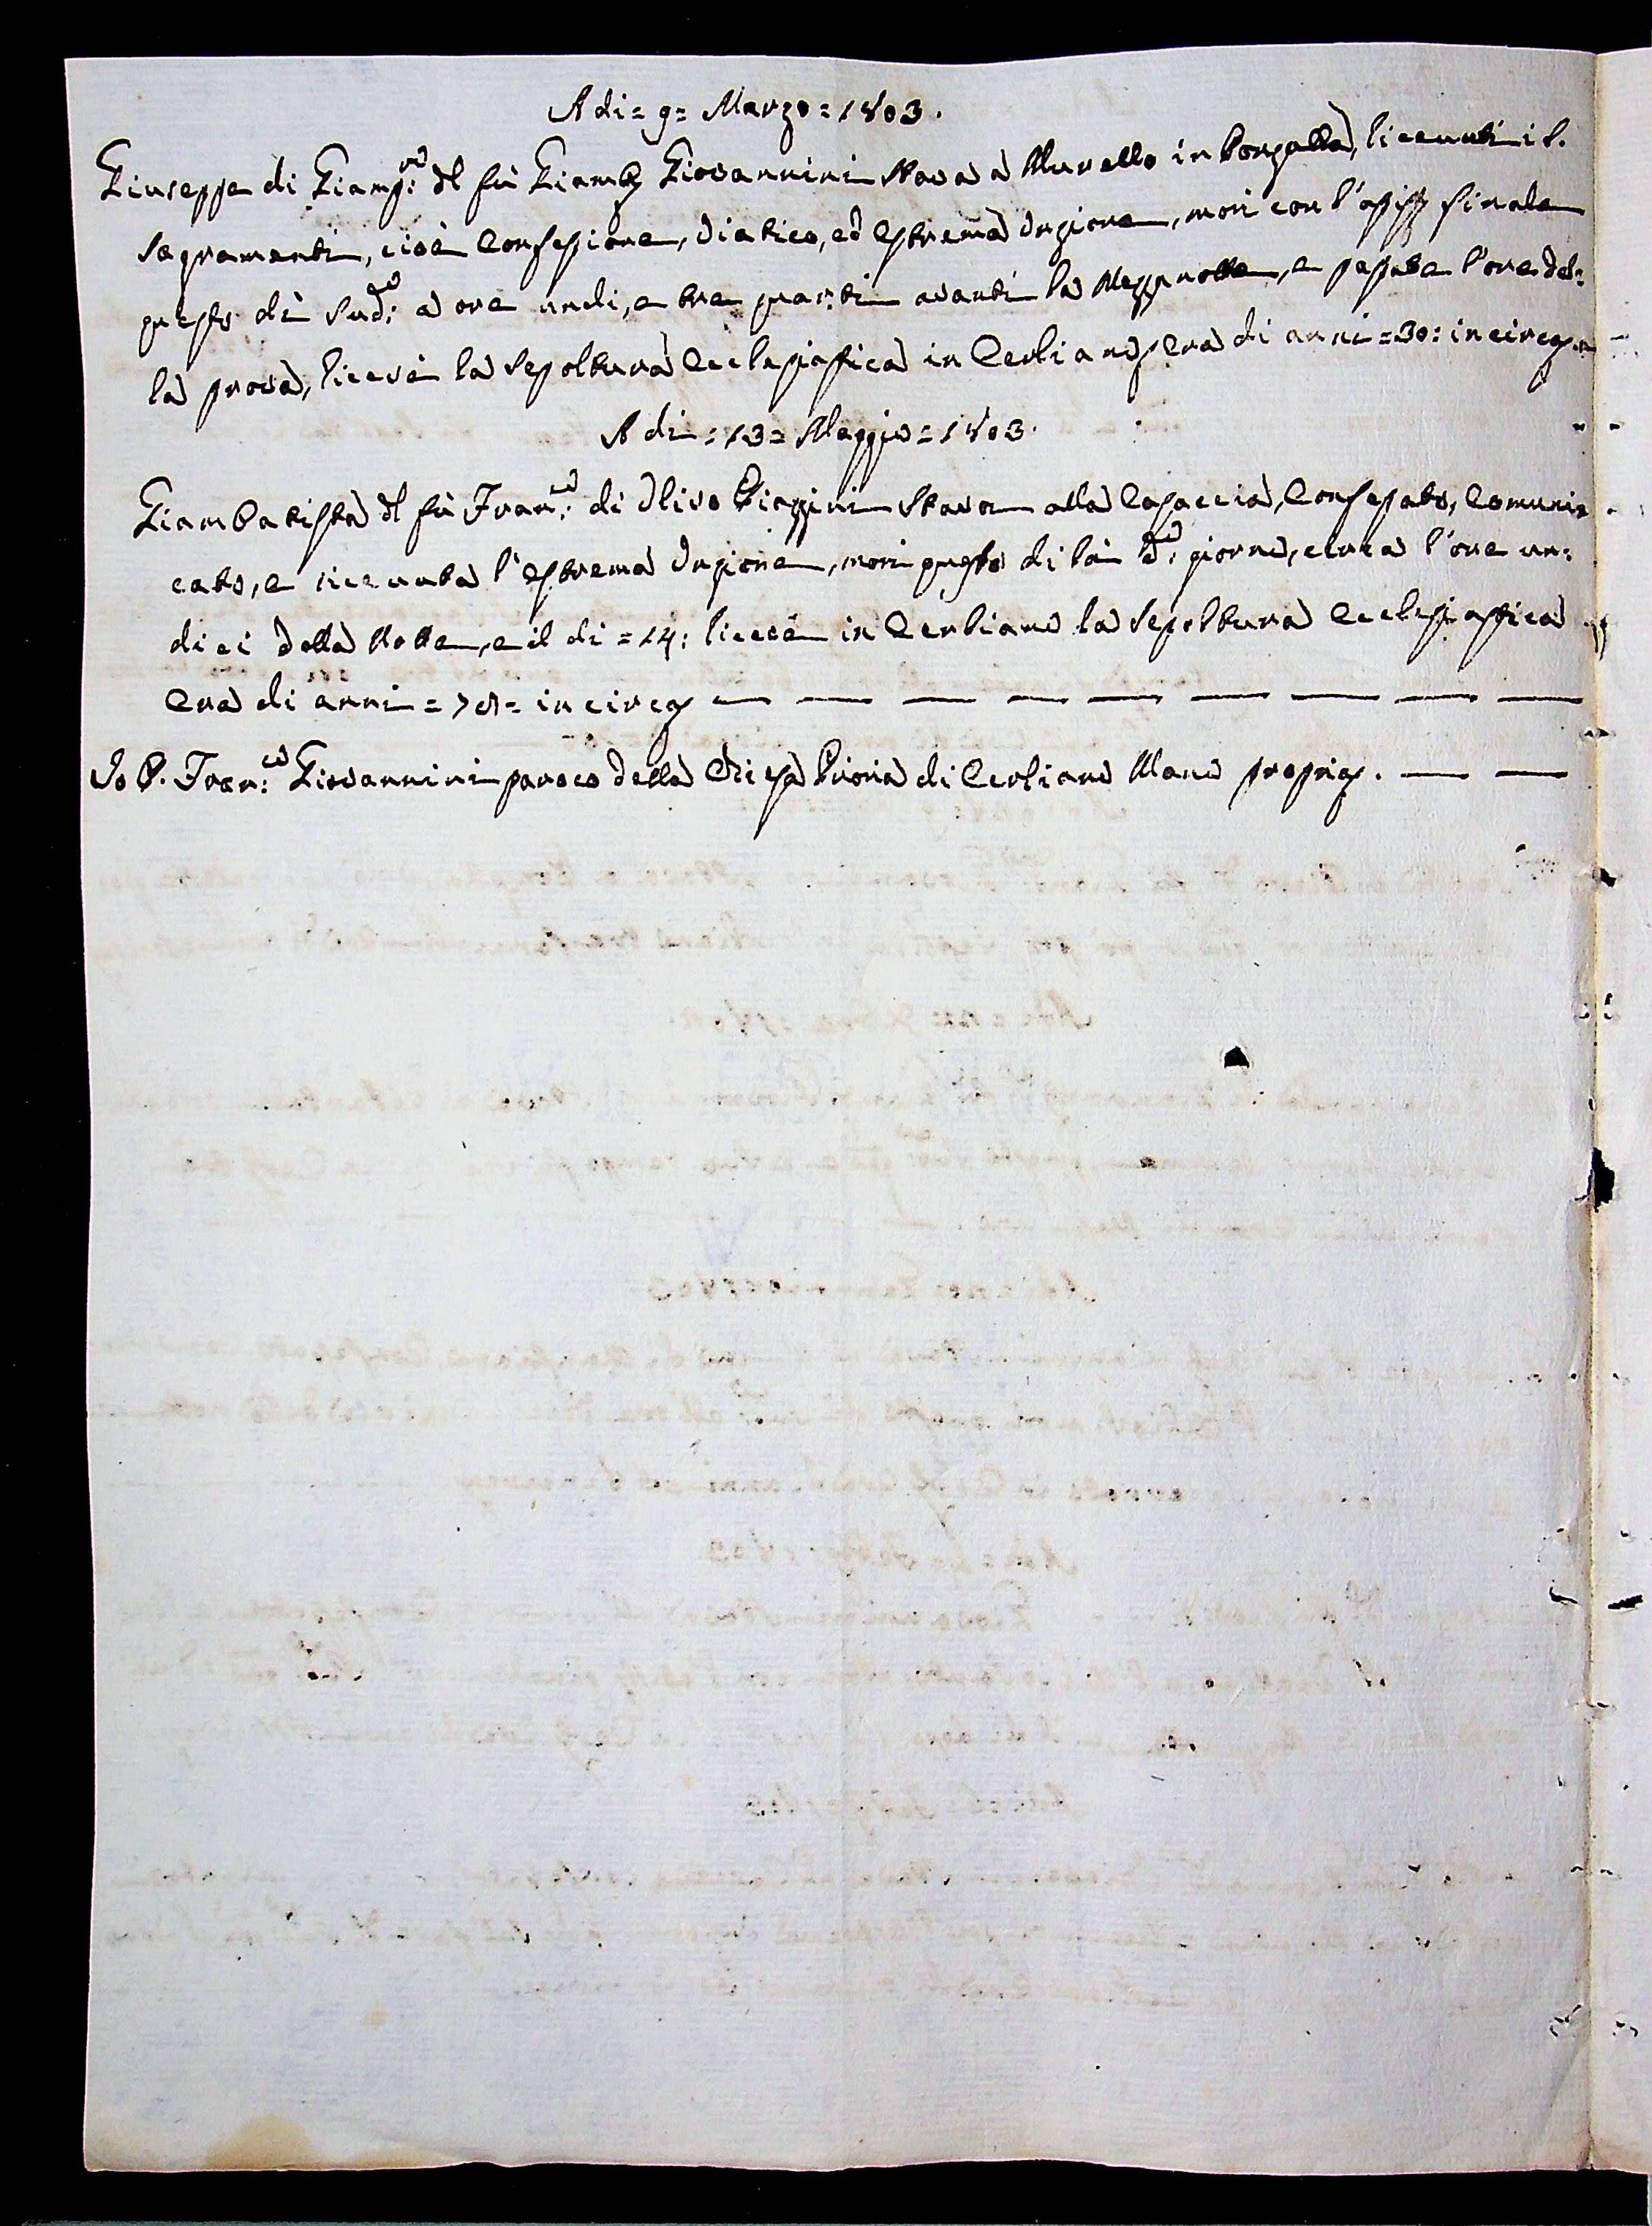 A di = 9 = Marzo = 1803.
Giuseppe di Giamp:ro dl fù Giamb Giovannini Stava a Murello in Borgalla, ricevuti i S.
Sagramenti, cioè Confessione, Viatico, ed estrema Unzione, morì con l'assis finale
questo dì Sud:to a ore undi, e tre quarti avanti la Mezzanotte, e passate l'ore del=
la prova, riceve la sepoltura Ecclesiastica in Cerliano, Era di anni = 30: in circa
A di = 13 = Maggio = 1803.
Giambatista dl fù Fran:co di Olivo Biaggini Stava alla Casaccia, Confessato, Comuni=
cato, e ricevuta l'estrema Unzione, morì questo dì 13 do giorno, circa l'ore un=
dici della Notte, e il dì = 14: ricevè in Cerliano la Sepoltura Ecclesiastica
Era di anni = 78 = in circa — — — — — — — — —
Io P. Fran:co Giovannini paroco della Chiesa Prioria di Cerliano Mano propria. — —